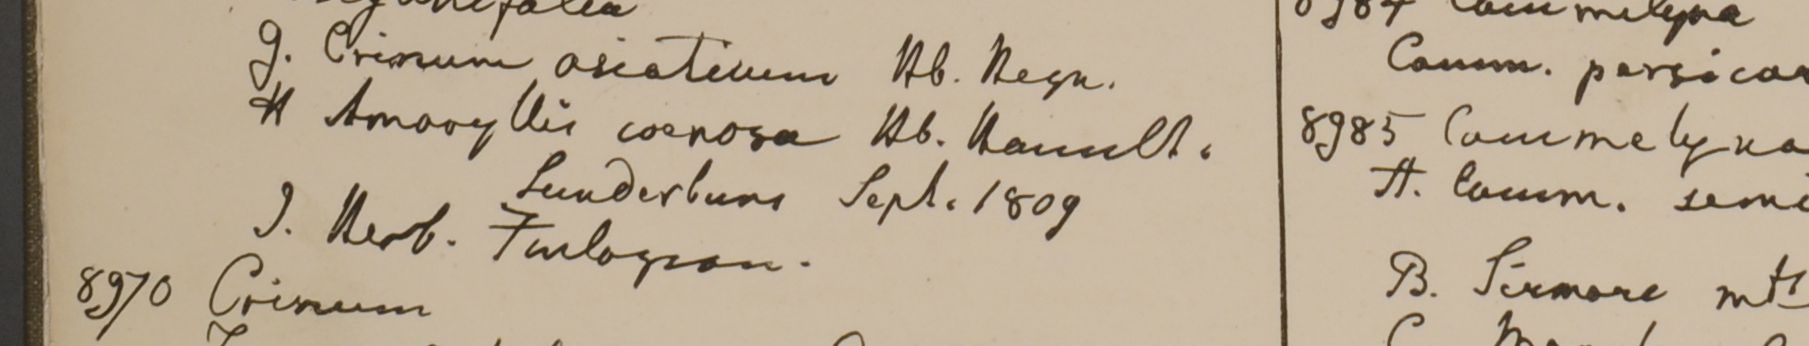 G. Crinum asiaticum Hb. Heyn.
H Amaryllis coenosa Hb. Hamilt.
Sunderbuns Sept. 1809
I. Herb. Finlayson.
8970 Crinum
8984 Commelyna
Comm. persicar
8985 Commelyna
A. Comm. semi
B. Sirmore mts